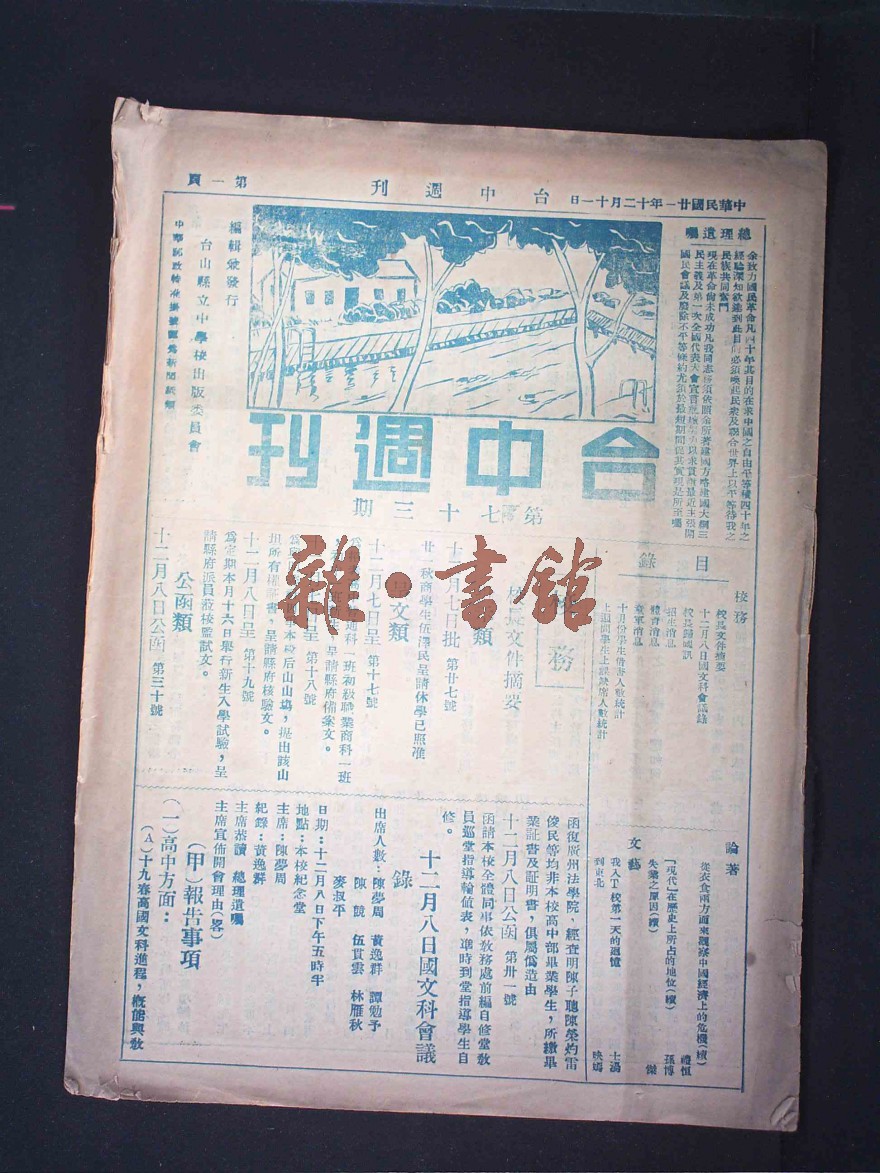 中華民國廿一年十二月十一日
台中週刊
第一頁
總理遺囑
余致力國民革命凡四十年其目的在求中國之自由平等積四十年之
經驗深知欲達到此目的必須喚起民眾及聯合世界上以平等待我之
民族共同奮鬥
現在革命尚未成功凡我同志務須依照余所著建國方略建國大綱三
民主義及第一次全國代表大會宣言繼續努力以求貫徹最近主張開
國民會議及廢除不平等條約尤須於最短期間促其實現是所至囑
編輯兼發行
台山縣立中學校出版委員會
中華郵政特准掛號認為新聞紙類
台中週刊
第七十三期
目錄
校務
校長文件摘要
十二月八日國文科會議錄
校長歸國訊
招生消息
體育消息
童軍消息
十月份學生借書人數統計
上週間學生上課缺席人數統計
論著
從衣食兩方面來觀察中國經濟上的危機(續) 禮恒
「現代」在歷史上所占的地位(續) 孫博
失業之原因(續) 傑
文藝
我入T校第一天的追憶 士鴻
到東北 映嫦
校務
校長文件摘要
類
十二月七日批 第廿七號
廿一秋商學生伍澤民呈請休學已照准
呈文類
十二月七日呈 第十七號
一班初級職業商科一班
呈請縣府備案文。
呈 第十八號
本校后山山場,批出該山
坦所有權証書,呈請縣府核驗文。
十二月八日呈 第十九號
為定期本月十六日舉行新生入學試驗,呈
請縣府派員蒞校監試文。
公函類
十二月八日公函 第三十號
函復廣州法學院,經查明陳子聰陳榮灼雷
俊民等均非本校高中部畢業學生,所繳畢
業証書及証明書,俱屬僞造由
十二月八日公函 第卅一號
函請本校全體同事依敎務處前編自修堂敎
員巡堂指導輪值表,準時到堂指導學生自
修。
十二月八日國文科會議
錄
出席人數:陳夢周 黃逸群 譚勉予
陳競 伍貫雲 林雁秋
麥叔平
日期:十二月八日下午五時半
地點:本校紀念堂
主席:陳夢周
紀錄:黃逸群
主席恭讀 總理遺囑
主席宣佈開會理由(畧)
(甲)報告事項
(一)高中方面:
(A)十九春高國文科進程,概能與敎
雜·書館